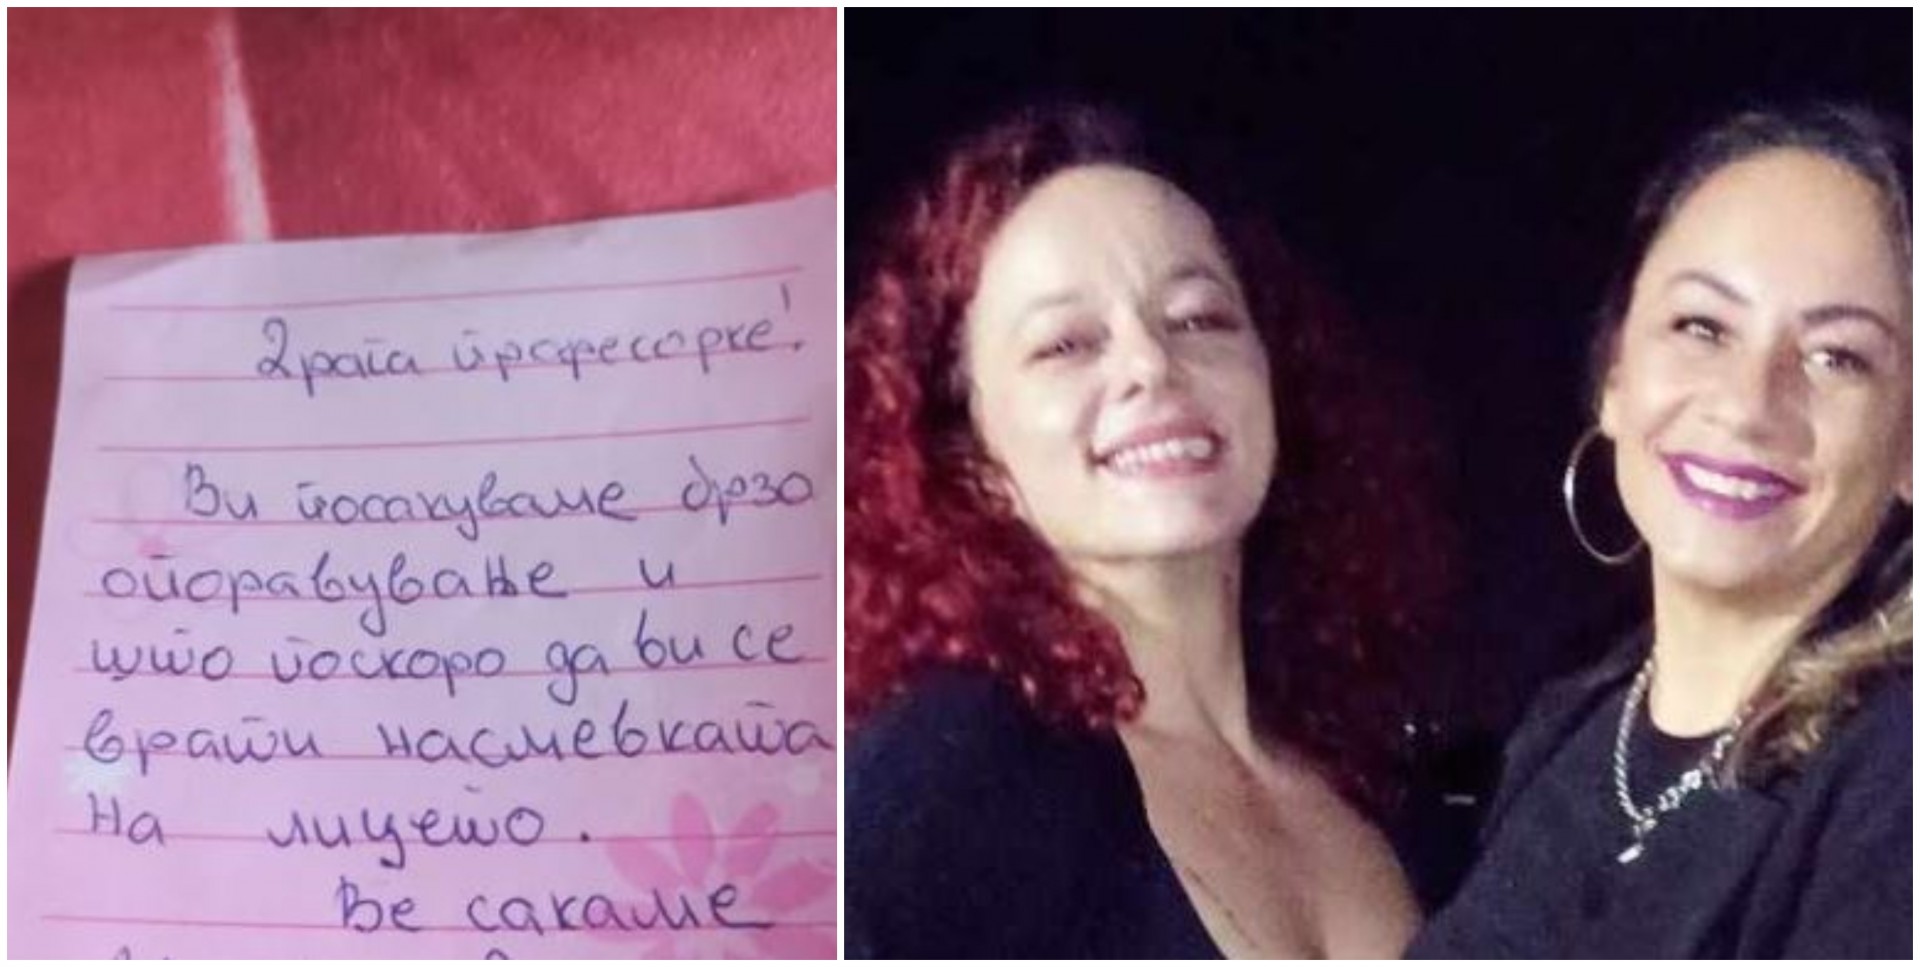 Драга професорке!
Ви посакуваме брзо
опоравување и
што поскоро да ви се
врати насмевката
на лицето.
Ве сакаме